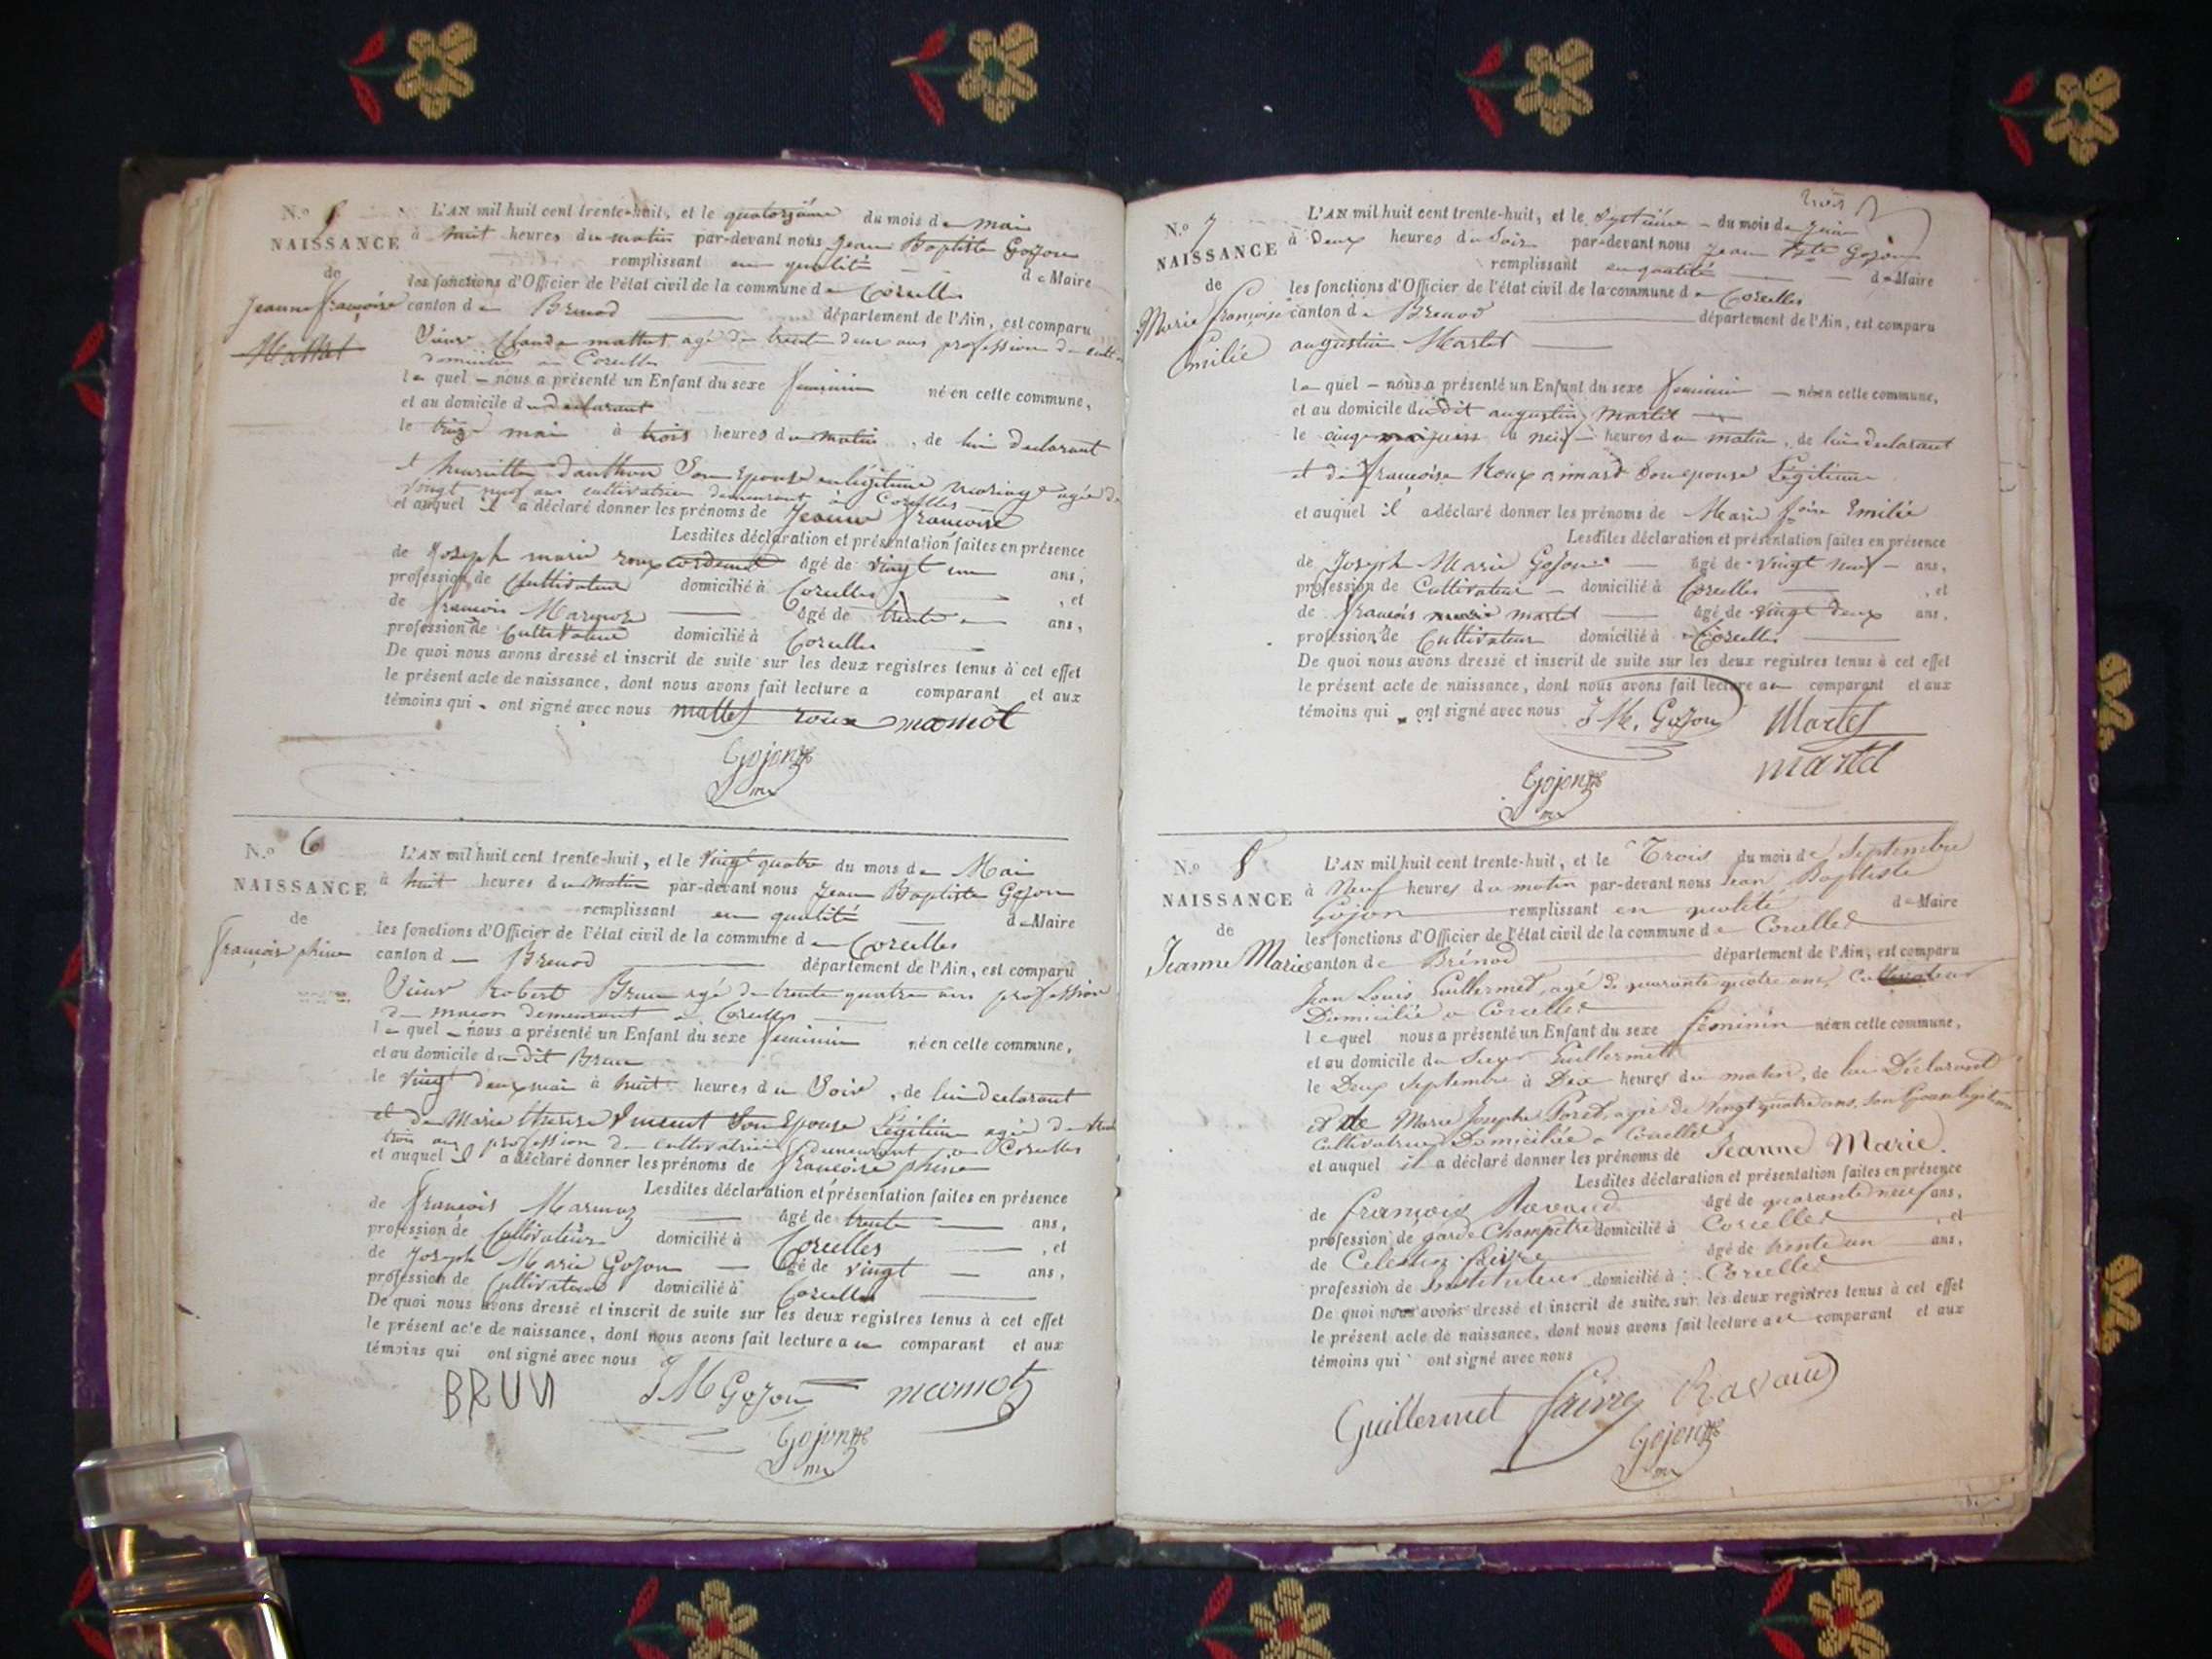 N.o 5
NAISSANCE
de
Jeanne françoise
Mattet
L'AN mil huit cent trente-huit, et le quatorzième du mois de mai
à huit heures du matin par-devant nous Jean Baptiste Gojon
remplissant en qualité de Maire
les fonctions d'Officier de l'état civil de la commune de Corcelles
canton de Brenod département de l'Ain, est comparu
Sieur Claude mattet agé de trente deux ans profession de
domicilié à Corcelles
lequel nous a présenté un Enfant du sexe feminin né en cette commune,
et au domicile du declarant
le treize mai à trois heures du matin, de lui declarant
et danthon Son Epouse en légitime mariage agée de
vingt neuf ans cultivatrice demeurant à Corcelles
et auquel il a déclaré donner les prénoms de Jeanne françoise
Lesdites déclaration et présentation faites en présence
de Joseph marie roux âgé de vingt un ans,
profession de Cultivateur domicilié à Corcelles, et
de françois Marmoz âgé de trente ans,
profession de Cultivateur domicilié à Corcelles
De quoi nous avons dressé et inscrit de suite sur les deux registres tenus à cet effet
le présent acte de naissance, dont nous avons fait lecture a comparant et aux
témoins qui ont signé avec nous mattet roux
Gojon
N.o 6
NAISSANCE
de
françoise phine
L'AN mil huit cent trente-huit, et le vingt quatre du mois de Mai
à huit heures du Matin par-devant nous Jean Baptiste Gojon
remplissant en qualité de Maire
les fonctions d'Officier de l'état civil de la commune de Corcelles
canton de Brenod département de l'Ain, est comparu
Sieur Robert Brun agé de trente quatre ans profession
de maçon demeurant à Corcelles
lequel nous a présenté un Enfant du sexe feminin né en cette commune,
et au domicile du dit Brun
le vingt deux mai à huit heures du Soir, de lui declarant
et de Marie therese Vincent Son Epouse Légitime agée de
trois ans profession de cultivatrice demeurant à Corcelles
et auquel il a déclaré donner les prénoms de françoise phine
Lesdites déclaration et présentation faites en présence
de françois Marmoz âgé de trente ans,
profession de Cultivateur domicilié à Corcelles, et
de Joseph Marie Gojon âgé de vingt ans,
profession de Cultivateur domicilié à Corcelles
De quoi nous avons dressé et inscrit de suite sur les deux registres tenus à cet effet
le présent acte de naissance, dont nous avons fait lecture au comparant et aux
témoins qui ont signé avec nous
BRUN J M Gojon
Gojon
trois
N.o 7
NAISSANCE
de
Marie françoise
Emilie
L'AN mil huit cent trente-huit, et le septième du mois de Juin
à Deux heures du Soir par-devant nous Jean Bte Gojon
remplissant en qualité de Maire
les fonctions d'Officier de l'état civil de la commune de Corcelles
canton de Brenod département de l'Ain, est comparu
augustin Martel
lequel nous a présenté un Enfant du sexe feminin né en cette commune,
et au domicile dudit augustin Martel
le cinq juin à neuf heures du matin, de lui declarant
et de françoise Roux aimard Son epouse Légitime
et auquel il a déclaré donner les prénoms de Marie foise Emilie
Lesdites déclaration et présentation faites en présence
de Joseph Marie Gojon âgé de vingt neuf ans,
profession de Cultivateur domicilié à Corcelles, et
de françois marie martel âgé de vingt deux ans,
profession de Cultivateur domicilié à Corcelles
De quoi nous avons dressé et inscrit de suite sur les deux registres tenus à cet effet
le présent acte de naissance, dont nous avons fait lecture au comparant et aux
témoins qui ont signé avec nous J M. Gojon Martel
martel
Gojon
N.o 8
NAISSANCE
de
Jeanne Marie
L'AN mil huit cent trente-huit, et le Trois du mois de Septembre
à Neuf heures du matin par-devant nous Jean Baptiste
Gojon remplissant en qualité de Maire
les fonctions d'Officier de l'état civil de la commune de Corcelles
canton de Brénod département de l'Ain, est comparu
Jean Louis Guillermet, agé de quarante quatre ans, Cultivateur
Domicilié a Corcelles
lequel nous a présenté un Enfant du sexe féminin né en cette commune,
et au domicile du Sieur Guillermet
le Deux Septembre à Dix heures du matin, de lui Déclarant
et de Marie Josephe Poret, agée de Vingt quatre ans, Son Epouse légitime
Cultivatrice Domiciliée a Corcelles
et auquel il a déclaré donner les prénoms de Jeanne Marie.
Lesdites déclaration et présentation faites en présence
de françois Ravaud âgé de quarante neuf ans,
profession de garde Champetre domicilié à Corcelles, et
de Celestin faivre âgé de trente un ans,
profession de Instituteur domicilié à Corcelles
De quoi nous avons dressé et inscrit de suite sur les deux registres tenus à cet effet
le présent acte de naissance, dont nous avons fait lecture au comparant et aux
témoins qui ont signé avec nous
Guillermet faivre Ravaud
Gojon